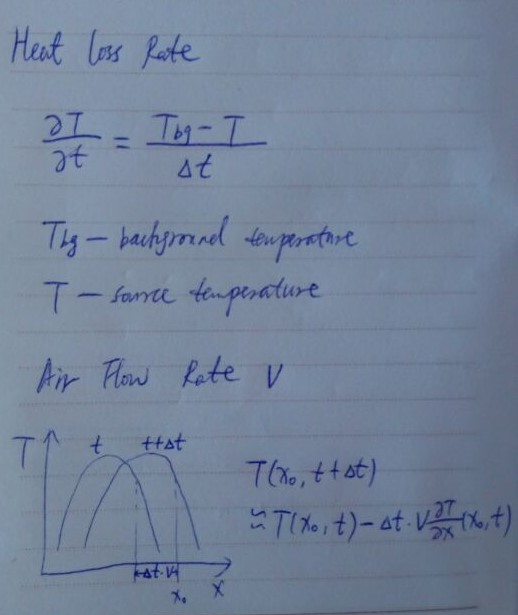 Heat loss Rate
∂T/∂t = (Tbg - T)/Δt
Tbg — background temperature
T — source temperature
Air Flow Rate V
T
t
t+Δt
Δt·V
x₀
X
T(x₀, t+Δt)
≈ T(x₀, t) - Δt·V ∂T/∂x (x₀, t)